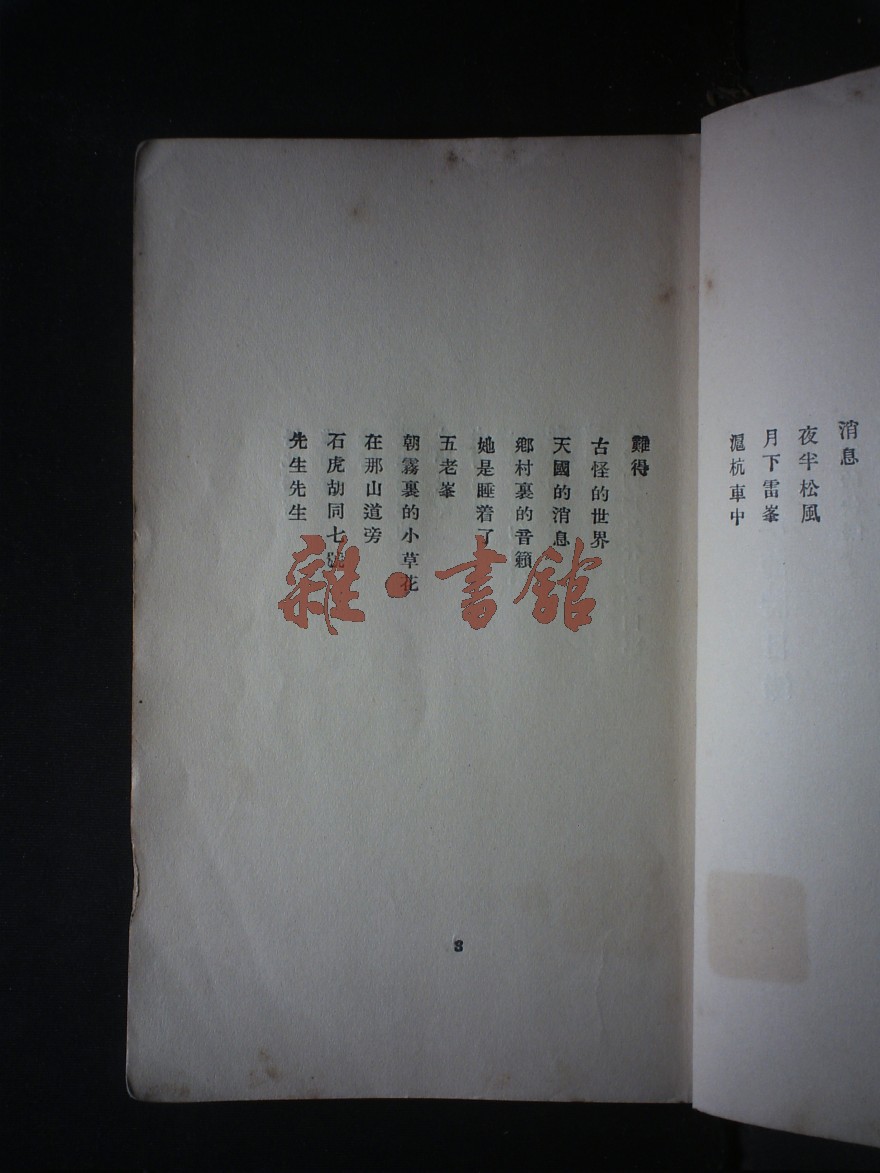 消息
夜半松風
月下雷峯
滬杭車中
難得
古怪的世界
天國的消息
鄉村裏的音籟
她是睡着了
五老峯
朝霧裏的小草花
在那山道旁
石虎胡同七號
先生先生
3
雜·書館